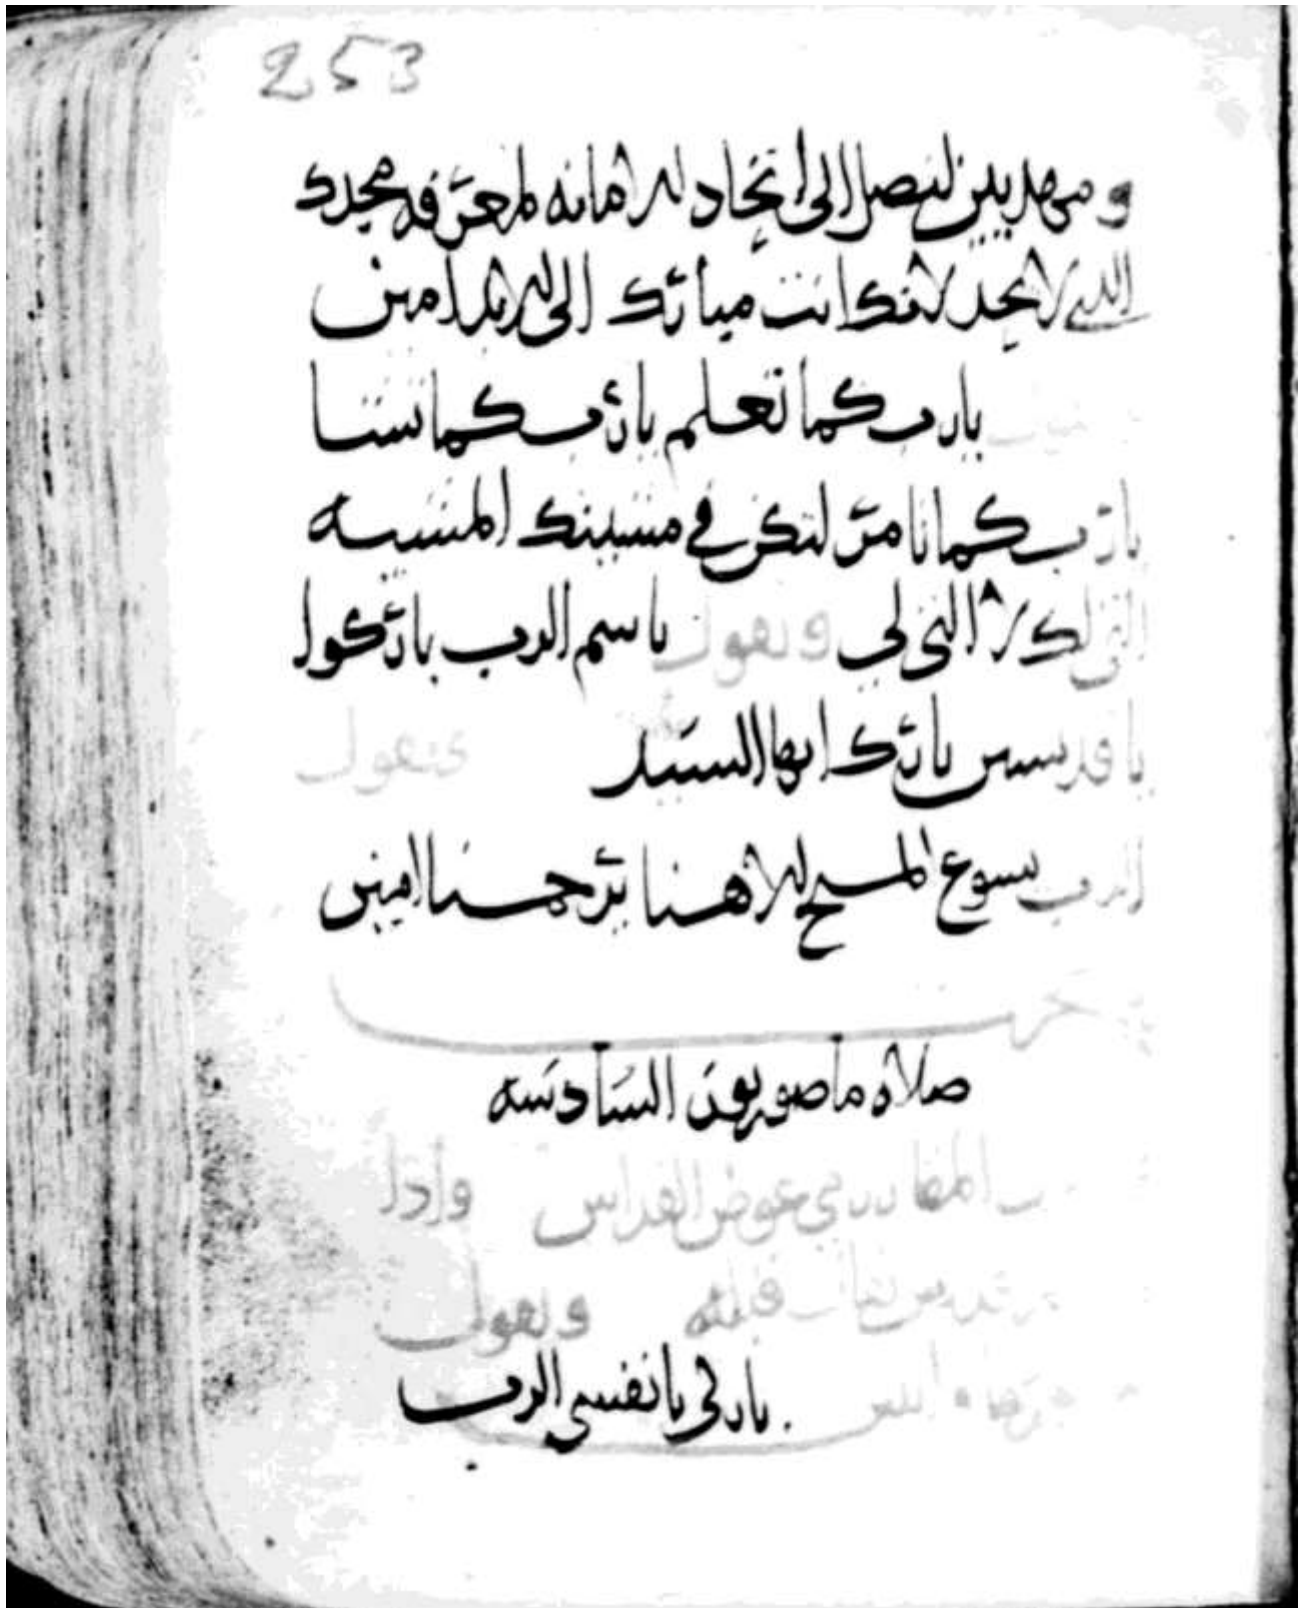 253
ومهدبين لنصل الى اتحاد الامانه لمعرفه مجدك
الدي لا يحد لانك انت مبارك الى الابد امين
يارب كما تعلم يارب كما تشا
يارب كمانا مر لتكن في مشيتك المشييه
التي لك لا التي لي ونقول باسم الرب بارك ول
يا قديسين بارك ايها السيد ونقول
الرب يسوع المسيح الاهنا يرحمنا امين
صلاه ماصوريون السادسه
عوض القداس وادا
قبلته ونقول
باركي يا نفسي الرب